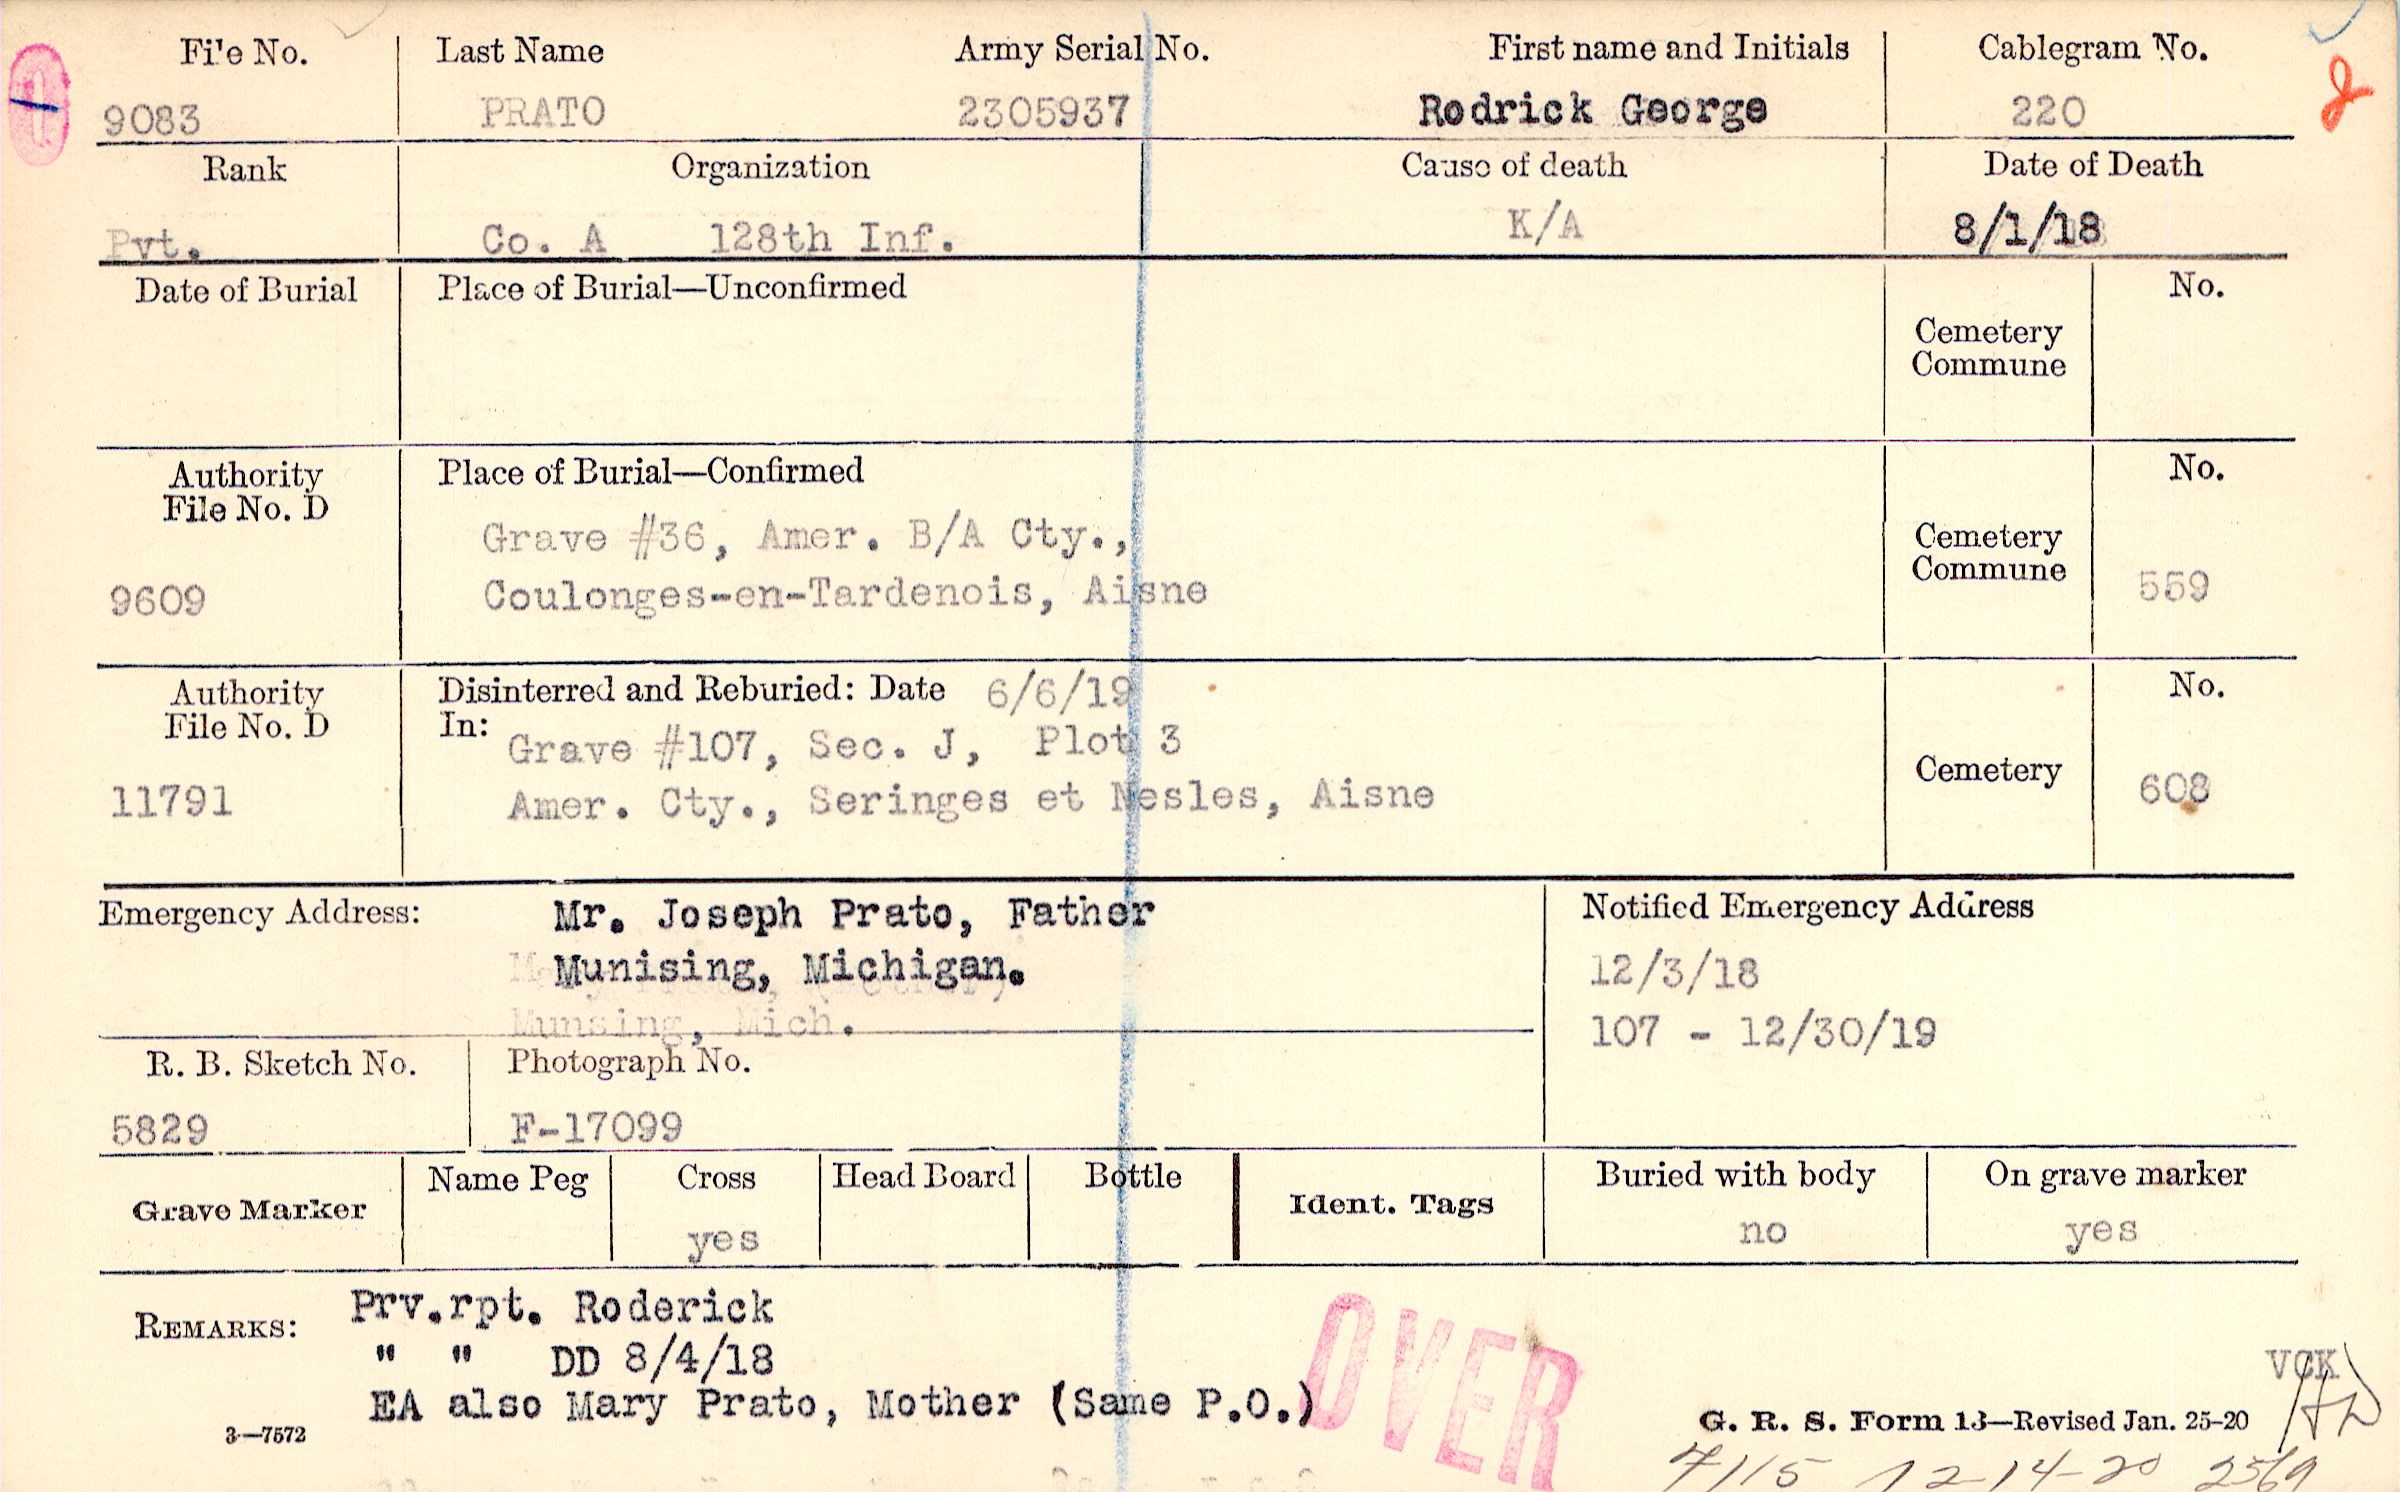 File No. Last Name Army Serial No. First name and Initials Cablegram No.
9083 PRATO 2305937 Rodrick George 220
Rank Organization Cause of death Date of Death
Pvt. Co. A 128th Inf. K/A 8/1/18
Date of Burial Place of Burial—Unconfirmed No.
Cemetery
Commune
Authority Place of Burial—Confirmed No.
File No. D
Grave #36, Amer. B/A Cty., Cemetery
Commune
9609 Coulonges-en-Tardenois, Aisne 559
Authority Disinterred and Reburied: Date 6/6/19 No.
File No. D In:
Grave #107, Sec. J, Plot 3
Cemetery
11791 Amer. Cty., Seringes et Nesles, Aisne 608
Emergency Address: Mr. Joseph Prato, Father Notified Emergency Address
Munising, Michigan. 12/3/18
Munsing, Mich. 107 - 12/30/19
R. B. Sketch No. Photograph No.
5829 F-17099
Name Peg Cross Head Board Bottle Buried with body On grave marker
Grave Marker Ident. Tags
yes no yes
REMARKS: Prv.rpt. Roderick
" " DD 8/4/18
EA also Mary Prato, Mother (Same P.O.)
OVER
VCK
3—7572 G. R. S. Form 13—Revised Jan. 25-20
7115 12-14-20 2569